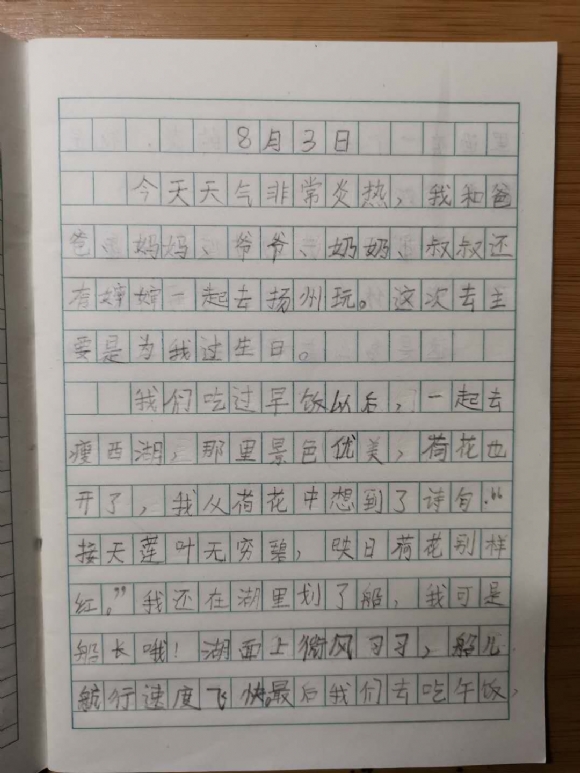 8月3日
今天天气非常炎热，我和爸
爸、妈妈、爷爷、奶奶、叔叔还
有婶婶一起去扬州玩。这次去主
要是为我过生日。
我们吃过早饭以后，一起去
瘦西湖，那里景色优美，荷花也
开了，我从荷花中想到了诗句：“
接天莲叶无穷碧，映日荷花别样
红。”我还在湖里划了船，我可是
船长哦！湖面上微风习习，船儿
航行速度飞快。最后我们去吃午饭，